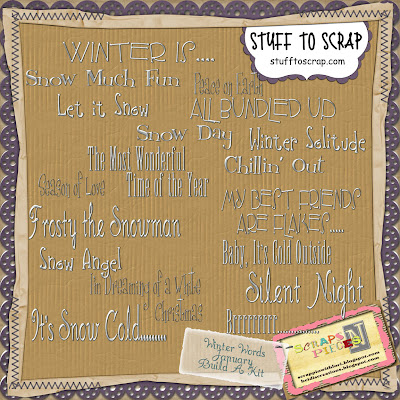 STUFF TO SCRAP
stufftoscrap.com
WINTER IS....
Snow Much Fun
Peace on Earth
Let it Snow
ALL BUNDLED UP
Snow Day
Winter Solitude
The Most Wonderful
Time of the Year
Chillin' Out
Season of Love
MY BEST FRIENDS
ARE FLAKES.....
Frosty the Snowman
Baby, It's Cold Outside
Snow Angel
I'm Dreaming of a White
Christmas
Silent Night
It's Snow Cold.........
Brrrrrrrr..........
Winter Words
January
Build A Kit
SCRAPS
N
PIECES